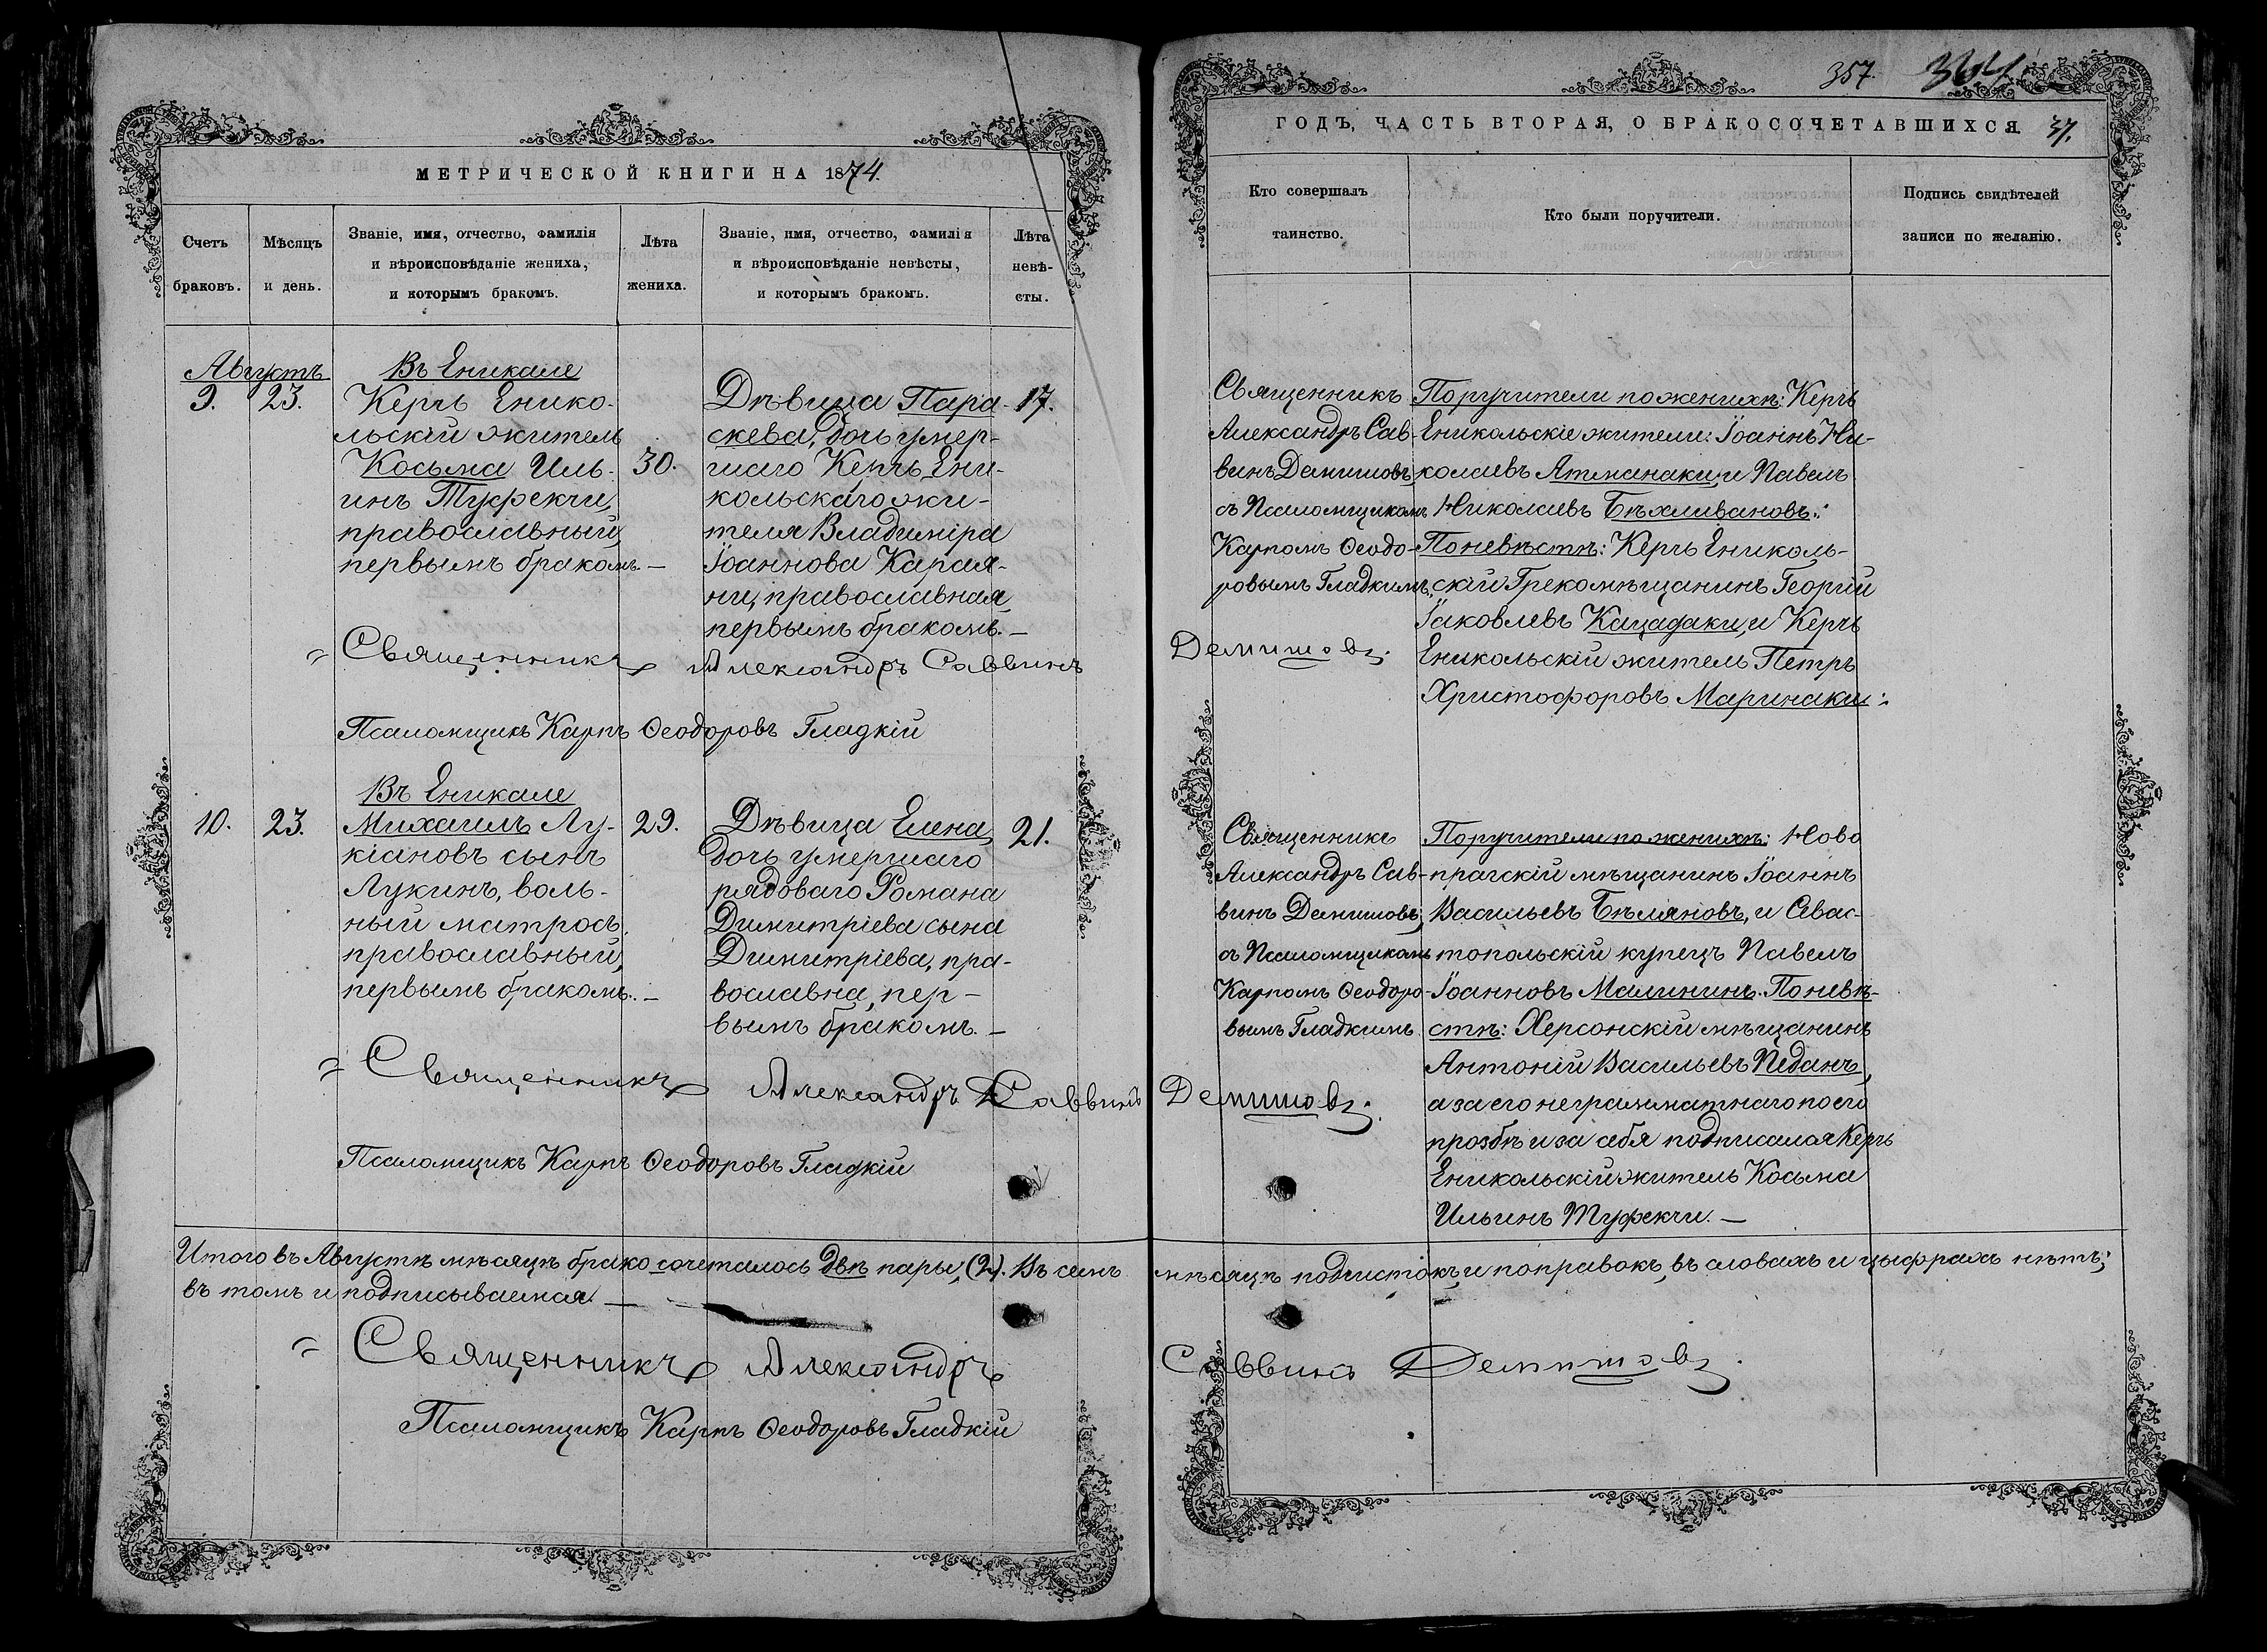 МЕТРИЧЕСКОЙ КНИГИ НА 1874.
Счетъ
браковъ.
Мѣсяцъ
и день.
Званіе, имя, отчество, фамилія
и вѣроисповѣданіе жениха,
и которымъ бракомъ.
Лѣта
жениха.
Званіе, имя, отчество, фамилія
и вѣроисповѣданіе невѣсты,
и которымъ бракомъ.
Лѣта
невѣ-
сты.
Августъ
9.
23.
Въ Еникале
Керчь Енико-
льскій житель
Косьма Иль-
инъ Туфекчи,
православный,
первымъ бракомъ.—
30.
Дѣвица Пара-
скева, дочь умер-
шаго Керчь Ени-
кольскаго жи-
теля Владиміра
Іоаннова Карая-
ни, православная,
первымъ бракомъ.—
17.
Священникъ Александръ Саввинъ
Псаломщикъ Карпъ Ѳеодоровъ Гладкій
10.
23.
Въ Еникале
Михаилъ Лу-
кіановъ сынъ
Лукинъ, воль-
ный матросъ,
православный,
первымъ бракомъ.—
29.
Дѣвица Елена,
дочь умершаго
рядоваго Романа
Димитріева сына
Димитріева, пра-
вославна, пер-
вымъ бракомъ.—
21.
Священникъ Александръ Саввинъ
Псаломщикъ Карпъ Ѳеодоровъ Гладкій
Итого въ Августѣ мѣсяцѣ бракосочеталось двѣ пары, (2). Въ семъ
въ томъ и подписываемся.—
Священникъ Александръ
Псаломщикъ Карпъ Ѳеодоровъ Гладкій
357. 364
ГОДЪ, ЧАСТЬ ВТОРАЯ, О БРАКОСОЧЕТАВШИХСЯ. 37.
Кто совершалъ
таинство.
Кто были поручители.
Подпись свидѣтелей
записи по желанію.
Священникъ
Александръ Сав-
винъ Демишовъ,
съ Псаломщикомъ
Карпомъ Ѳеодо-
ровымъ Гладкимъ.
Демишовъ.
Поручители по женихѣ: Керчь
Еникольскіе жители: Іоаннъ Ни-
колаевъ Атманаки, и Павелъ
Николаевъ Бѣхливановъ.:
По невѣстѣ: Керчь Ениколь-
скій Грекомѣщанинъ Георгій
Іаковлевъ Кацадаки, и Керчь
Еникольскій житель Петръ
Христофоровъ Маринаки:
Священникъ
Александръ Сав-
винъ Демишовъ,
съ Псаломщикомъ
Карпомъ Ѳеодоро-
вымъ Гладкимъ.
Демишовъ.
Поручители по женихѣ: Ново
прагскій мѣщанинъ Іоаннъ
Васильевъ Бѣляновъ, и Севас-
топольскій купецъ Павелъ
Іоанновъ Малининъ. По невѣ-
стѣ: Херсонскій мѣщанинъ
Антоній Васильевъ Педанъ,
а за его неграмматнаго по его
прозбѣ и за себя подписался Керчь
Еникольскій житель Косьма
Ильинъ Туфекчи.—
мѣсяцѣ подчистокъ, и поправокъ, въ словахъ и цыфрахъ нѣтъ;
Саввинъ Демишовъ.